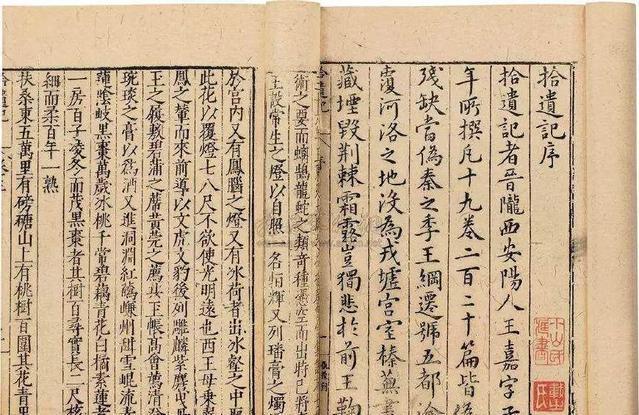 拾遺記序
拾遺記者晉隴西安陽人王嘉字子
年所撰凡十九卷二百二十篇皆
殘缺當偽秦之季王綱遷號五都淪
覆河洛之地没為戎墟宮室榛蕪書
藏堙毀荆棘霜露豈獨悲於前王鞠
之類奇種憑空而出
王設常生之燈以自照一名恒輝又列璠膏之燭
拾遺記
於宮内又有鳳腦之燈又有氷荷者出氷壑之
此花以覆燈七八尺不欲使光明遠也西王母乘
鳳之輦而來前導以文虎文豹後列雕麟紫麏
王之履敷碧蒲之蓆黃莞之薦共玉帳高會薦清
琬琰之膏以為酒又進洞淵紅蘤嵊州甜雪崐流素
蓮陰岐黑棗萬歲氷桃千常碧藕青花白橘素蓮
一房百子凌冬而茂黑棗者其樹百尋實長二尺核
細而柔百年一熟
扶桑東五萬里有磅磄山上有桃樹百圍其花青
拾遺記